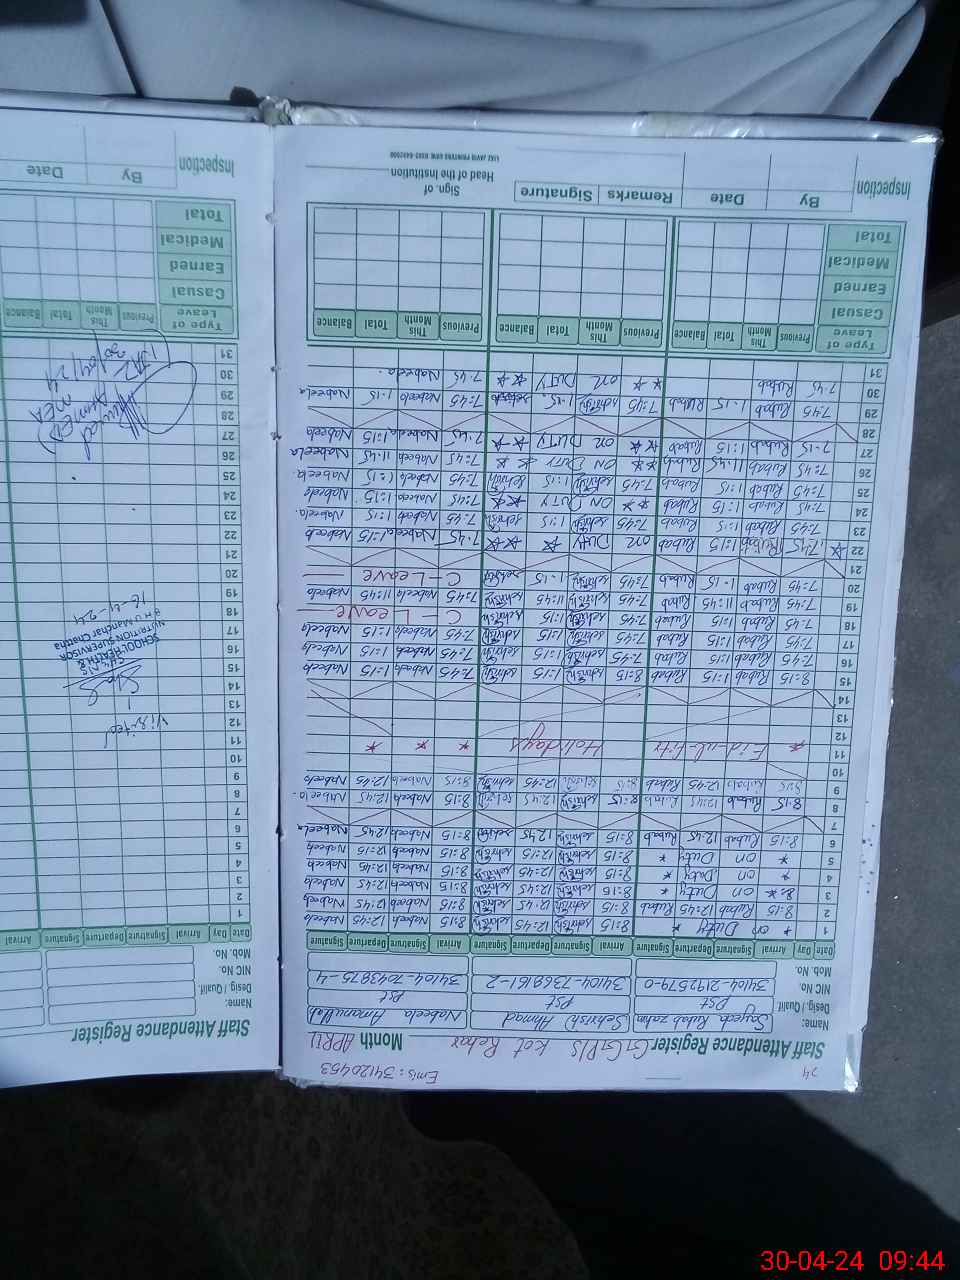 24
Emis: 34120453
Staff Attendance Register GGPS Kot Rehar Month APRIL
Name: Sayeda Rubab zahra Sehrish Ahmad Nabeela Amanullah
Desig / Qualif. PST PST PST
NIC No. 34104-2192579-0 34104-7368161-2 34104-7043875-4
Mob. No.
Date Day Arrival Signature Departure Signature Arrival Signature Departure Signature Arrival Signature Departure Signature
1 * on Duty * 8:15 Sehrish 12:45 Sehrish 8:15 Nabeela 12:45 Nabeela
2 8:15 Rubab 12:45 Rubab 8:15 Sehrish 12:45 Sehrish 8:15 Nabeela 12:45 Nabeela
3 on Duty * 8:15 Sehrish 12:45 Sehrish 8:15 Nabeela 12:45 Nabeela
4 * on Duty * 8:15 Sehrish 12:45 Sehrish 8:15 Nabeela 12:45 Nabeela
5 * on Duty * 8:15 Sehrish 12:15 Sehrish 8:15 Nabeela 12:15 Nabeela
6 8:15 Rubab 12:45 Rubab 8:15 Sehrish 12:45 Sehrish 8:15 Nabeela 12:45 Nabeela
7
8 8:15 Rubab 12:45 Rubab 8:15 Sehrish 12:45 Sehrish 8:15 Nabeela 12:45 Nabeela
9 8:15 Rubab 12:45 Rubab 8:15 Sehrish 12:45 Sehrish 8:15 Nabeela 12:45 Nabeela
10
11 * Eid-ul-Fitr Holidays * * *
12
13
14
15 8:15 Rubab 1:15 Rubab 8:15 Sehrish 1:15 Sehrish 7:45 Nabeela 1:15 Nabeela
16 7:45 Rubab 1:15 Rubab 7:45 Sehrish 1:15 Sehrish 7:45 Nabeela 1:15 Nabeela
17 7:45 Rubab 1:15 Rubab 7:45 Sehrish 1:15 Sehrish 7:45 Nabeela 1:15 Nabeela
18 7:45 Rubab 1:15 Rubab 7:45 Sehrish 1:15 Sehrish C-Leave
19 7:45 Rubab 11:45 Rubab 7:45 Sehrish 11:45 Sehrish 7:45 Nabeela 11:45 Nabeela
20 7:45 Rubab 1:15 Rubab 7:45 Sehrish 1:15 Sehrish C-Leave
21
22 7:45 Rubab 1:15 Rubab on Duty 7:45 Nabeela 1:15 Nabeela
23 7:45 Rubab 1:15 Rubab 7:45 Sehrish 1:15 Sehrish 7:45 Nabeela 1:15 Nabeela
24 7:45 Rubab 1:15 Rubab * * ON DUTY 7:45 Nabeela 1:15 Nabeela
25 7:45 Rubab 1:15 Rubab 7:45 Sehrish 1:15 Sehrish 7:45 Nabeela 1:15 Nabeela
26 7:45 Rubab 11:45 Rubab * * ON DUTY * * 7:45 Nabeela 11:45 Nabeela
27 7:45 Rubab 1:15 Rubab * * on DUTY 7:45 Nabeela 1:15 Nabeela
28
29 7:45 Rubab 1:15 Rubab 7:45 Sehrish 1:15 Sehrish 7:45 Nabeela 1:15 Nabeela
30 7:45 Rubab * * on DUTY 7:45 Nabeela
31
Type of Leave Previous This Month Total Balance Previous This Month Total Balance Previous This Month Total Balance
Casual
Earned
Medical
Total
Inspection By Date Remarks Signature Sign. of Head of the Institution
Staff Attendance Register
Name:
Desig / Qualif.
NIC No.
Mob. No.
Date Day Arrival Signature Departure Signature Arrival
1
2
3
4
5
6
7
8
9
10
11
12 Visited
13
14
15
16 SCHOOL HEALTH &
17 NUTRITION SUPERVISOR
18 B H U Manchar Chattha
19 16-4-24
20
21
22
23
24
25
26
27
28
29
30
31
Ahmed
AEO
30/04/24
Type of Leave Previous This Month Total Balance
Casual
Earned
Medical
Total
Inspection By Date
30-04-24 09:44